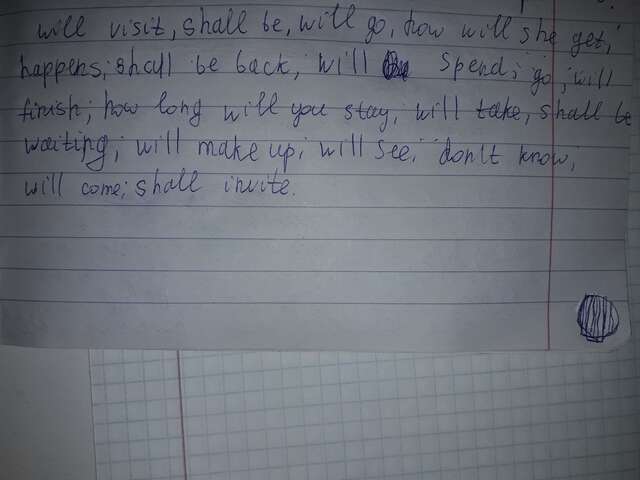 will visit, shall be, will go, how will she get;
happens; shall be back; will spend; go; will
finish; how long will you stay; will take, shall be
waiting; will make up; will see; don't know;
will come; shall invite.